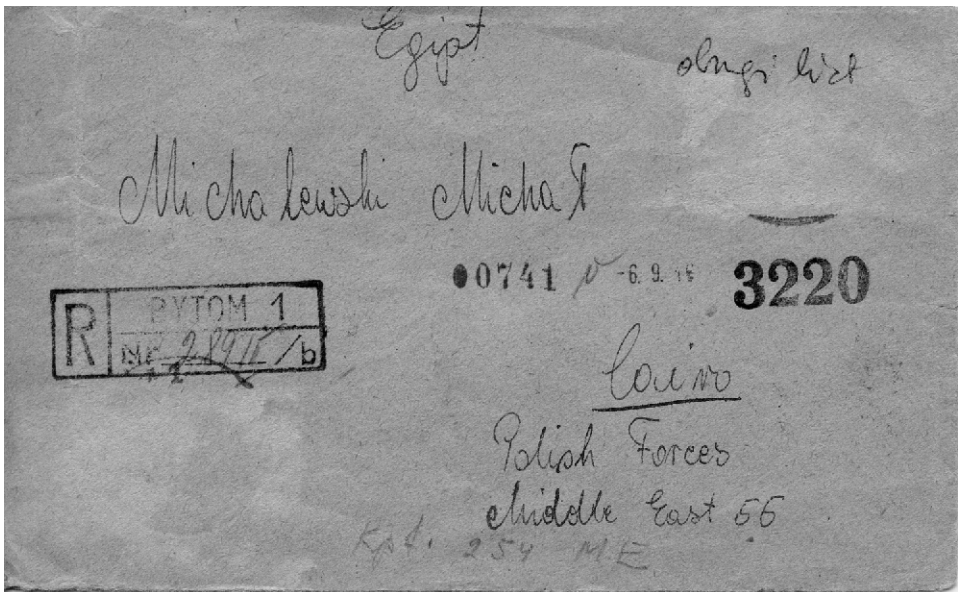 Egipt
drugi list
Michalewski Michał
00741 -6. 9. 46 3220
R BYTOM 1
Nr /b
Cairo
Polish Forces
Middle East 56
Kpt. 254 ME